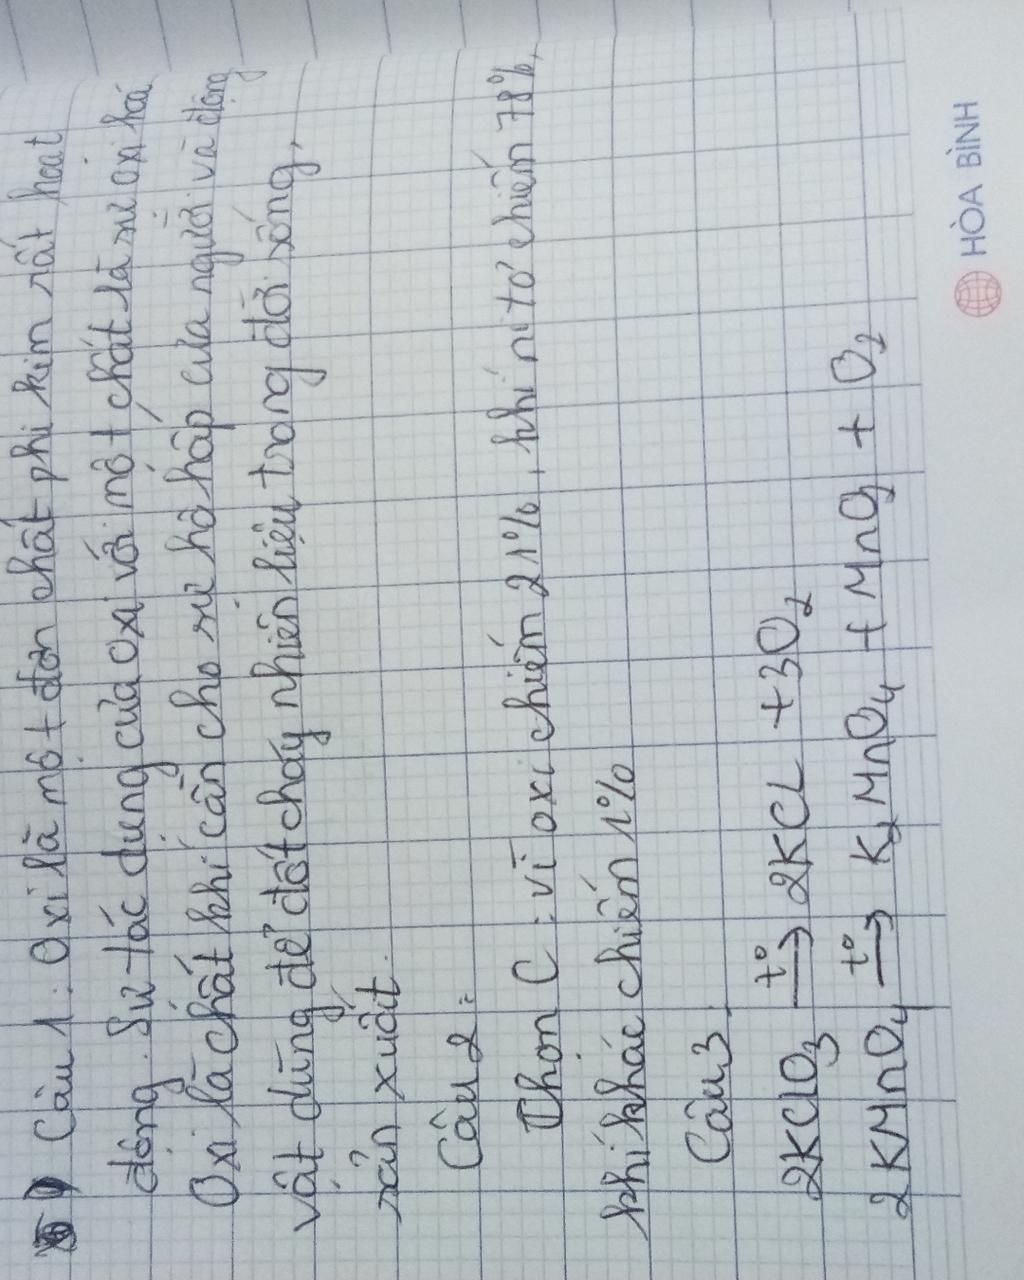 Câu 1: Oxi là một đơn chất phi kim rất hoạt
động. Sự tác dụng của oxi với một chất là sự oxi hoá
Oxi là chất khí cần cho sự hô hấp của người và động
vật dùng để đốt cháy nhiên liệu trong đời sống,
sản xuất.
Câu 2:
Chọn C: vì oxi chiếm 21%, khí nitơ chiếm 78%,
khí khác chiếm 1%
Câu 3
2KClO3 t° → 2KCL + 3O2
2KMnO4 t° → K2MnO4 + MnO2 + O2
HÒA BÌNH